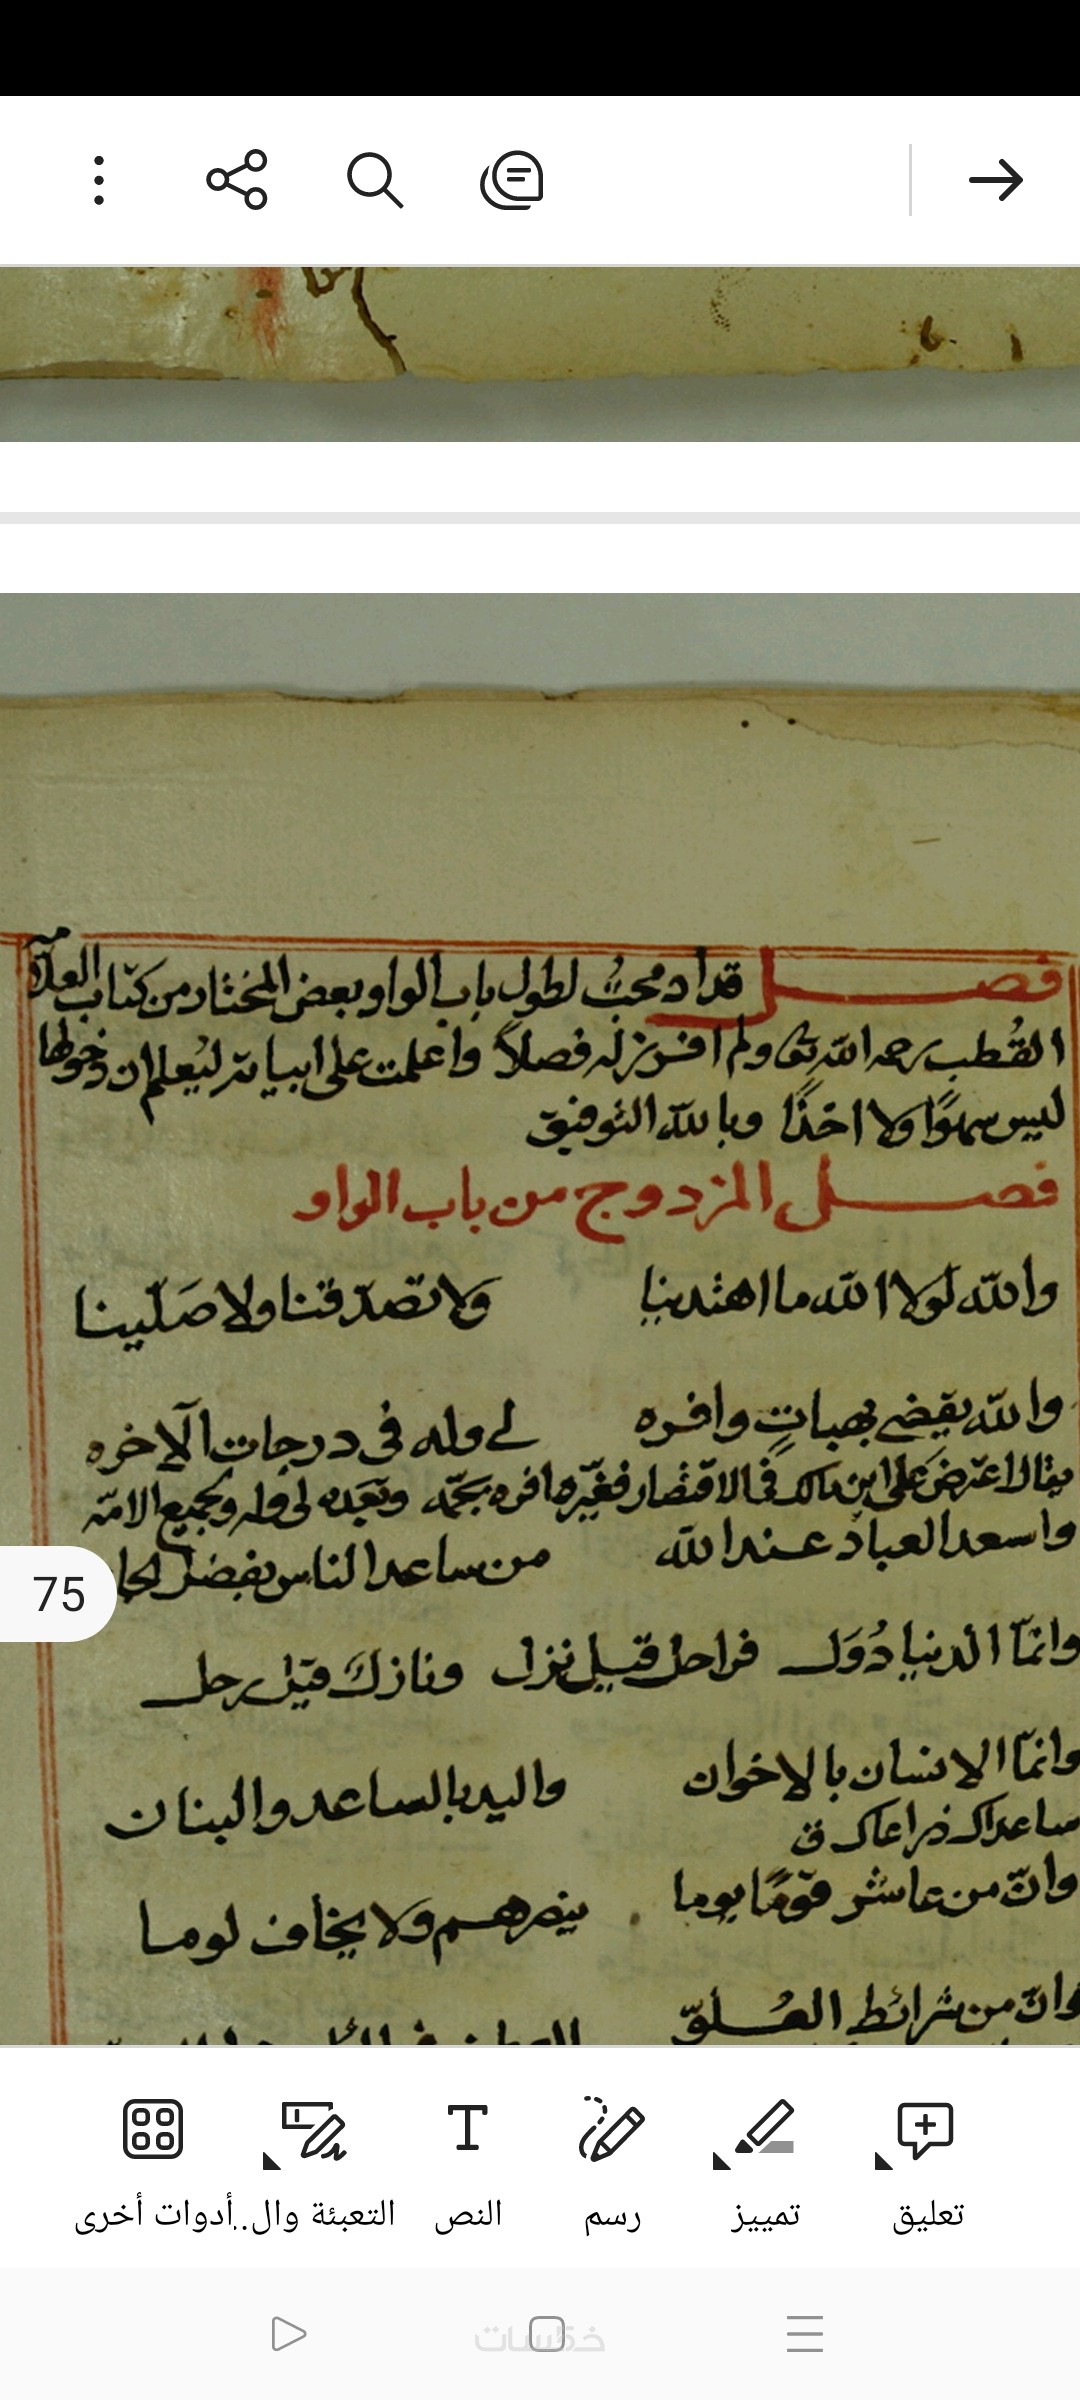 فصل قد ادمجتُ لطول باب الواو بعض المختار من كتاب العلامة
القُطب رحمه الله تعالى ولم افرز له فصلاً واعلمت على ابياته ليُعلم ان دخولها
ليس سهوًا ولا اخذًا وبالله التوفيق
فصل المزدوج من باب الواو
والله لولا الله ما اهتدينا ولا تصدّقنا ولا صَلّينا
والله يقضي بهباتٍ وافره لي وله في درجات الآخره
يقال اعترض على ابن مالك في الاقتصار فغيّره وافره بجمّه وبَعده لي وله ولجميع الامّه
واسعد العباد عند الله من ساعد الناس بفضل الجا
وانمّا الدنيا دُوَل فراحل قيل نزل ونازل قيل رحل
وانمّا الانسان بالاخوان واليد بالساعد والبنان
ساعداك ذراعاك ق
وانّ من عاشر قومًا يوما ينصرهم ولا يخاف لوما
وانّ من شرائط العُلوّ
75
تعليق
تمييز
رسم
النص
التعبئة وال..
أدوات أخرى
خمسات